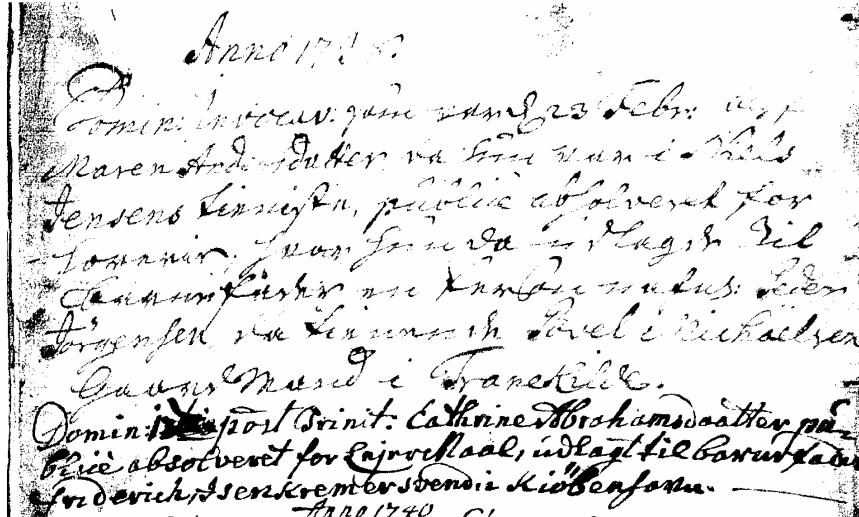 Anno 17
Domin: Invocav: som var d 23 Febr:
Maren Andersdatter, da hun var i Niels
Jensens tienniste, publicè absolveret for
hvor hun da udlagde til
Barnefader en Person nafnl: Peder
Jörgensen, da tiennende Povel Michaelsen
Gaard Mand i TraneKilde.
Domin: post Trinit: Cathrine Abrahamsdaatter pu-
blicè absolveret for LejerMaal, udlagt til barnefader
Friderich, IsenKremersvend i Kiöbenhavn.
Anno 1740